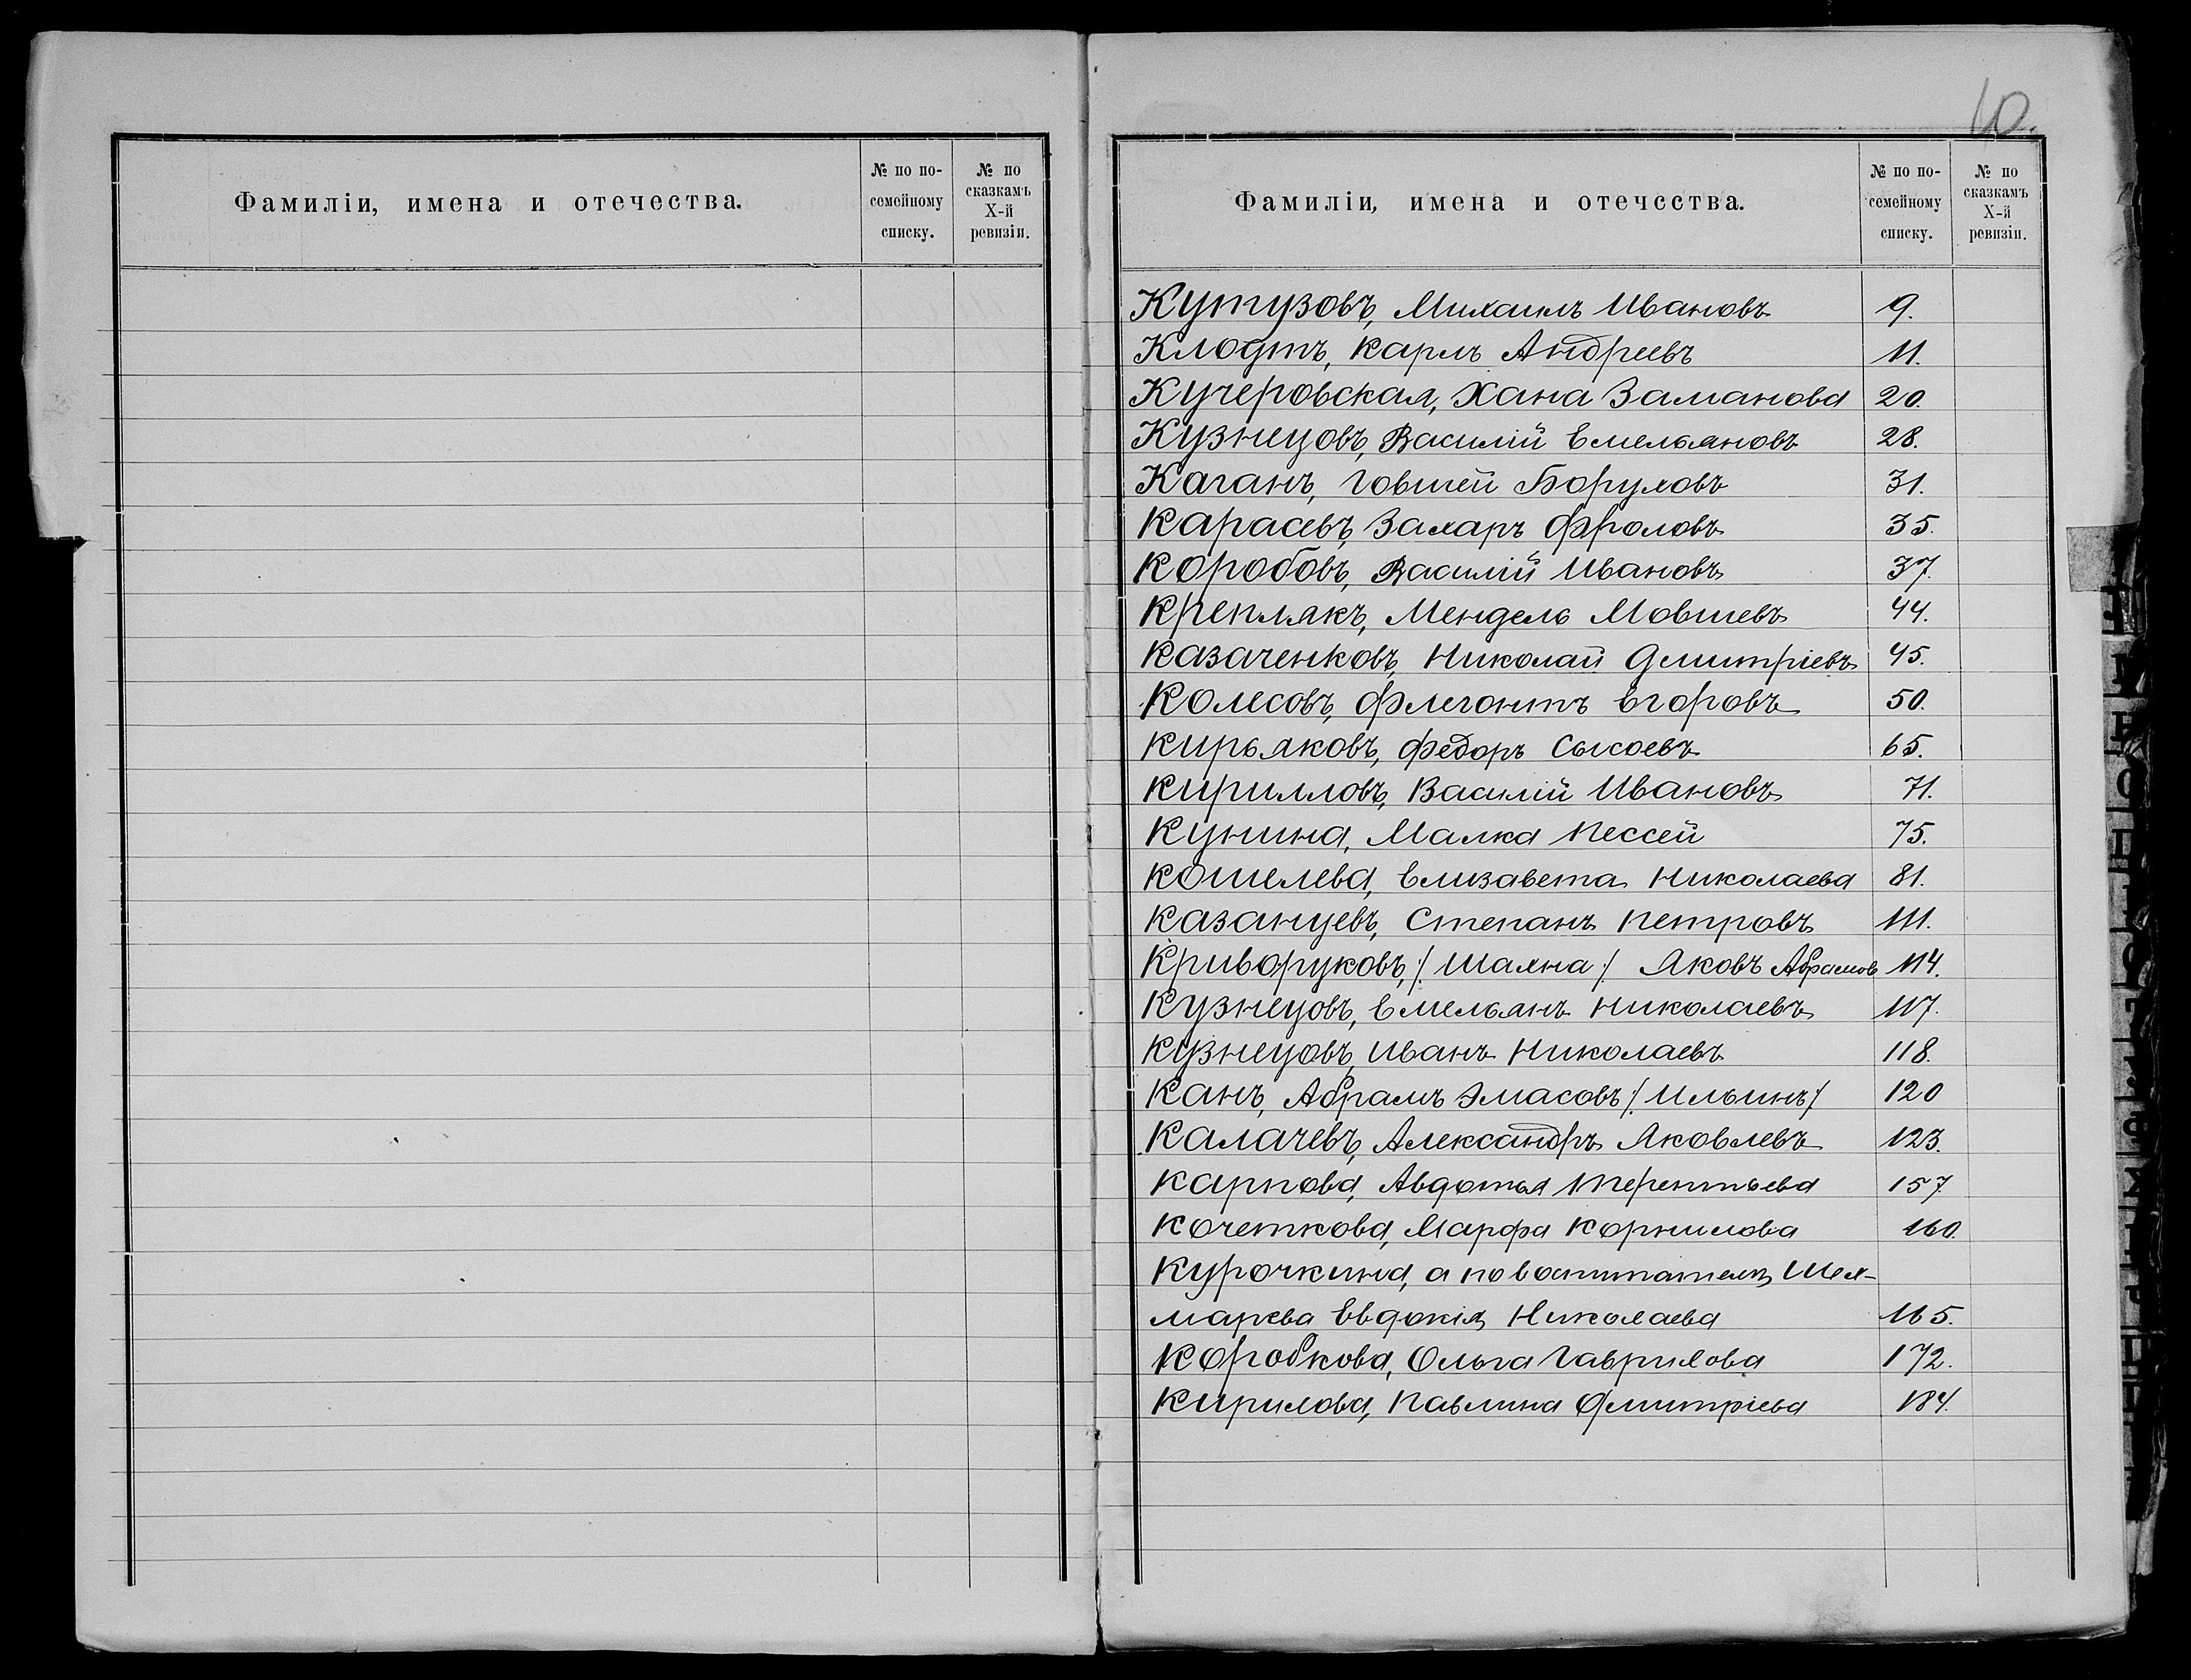 10.
Фамиліи, имена и отечества.
№ по по-
семейному
списку.
№ по
сказкамъ
X-й
ревизіи.
Фамиліи, имена и отечества.
№ по по-
семейному
списку.
№ по
сказкамъ
X-й
ревизіи.
Кутузовъ, Михаилъ Ивановъ 9.
Клодтъ, Карлъ Андреевъ 11.
Кучеровская, Хана Заманова 20.
Кузнецовъ, Василій Емельяновъ 28.
Каганъ, Говшей Боруховъ 31.
Карасевъ, Захаръ Фроловъ 35.
Коробовъ, Василій Ивановъ 37.
Креплякъ, Мендель Мовшевъ 44.
Казаченковъ, Николай Дмитріевъ 45.
Колесовъ, Флегонтъ Егоровъ 50.
Кирьяковъ, Федоръ Сысоевъ 65.
Кирилловъ, Василій Ивановъ 71.
Кунина, Малка Пессей 75.
Кошелева, Елизавета Николаева 81.
Казанцевъ, Степанъ Петровъ 111.
Криворуковъ, /: Шахна :/ Яковъ Абрамов 114.
Кузнецовъ, Емельянъ Николаевъ 117.
Кузнецовъ, Иванъ Николаевъ 118.
Канъ, Абрамъ Эмасовъ /: Ильинъ :/ 120
Калачевъ, Александръ Яковлевъ 123.
Карпова, Авдотья Терентьева 157
Кочеткова, Марфа Корнилова 160.
Курочкина, а по воспитателю Шех-
марева Евдокія Николаева 165.
Коробкова, Ольга Гаврилова 172.
Кирилова, Павлина Дмитріева 184.